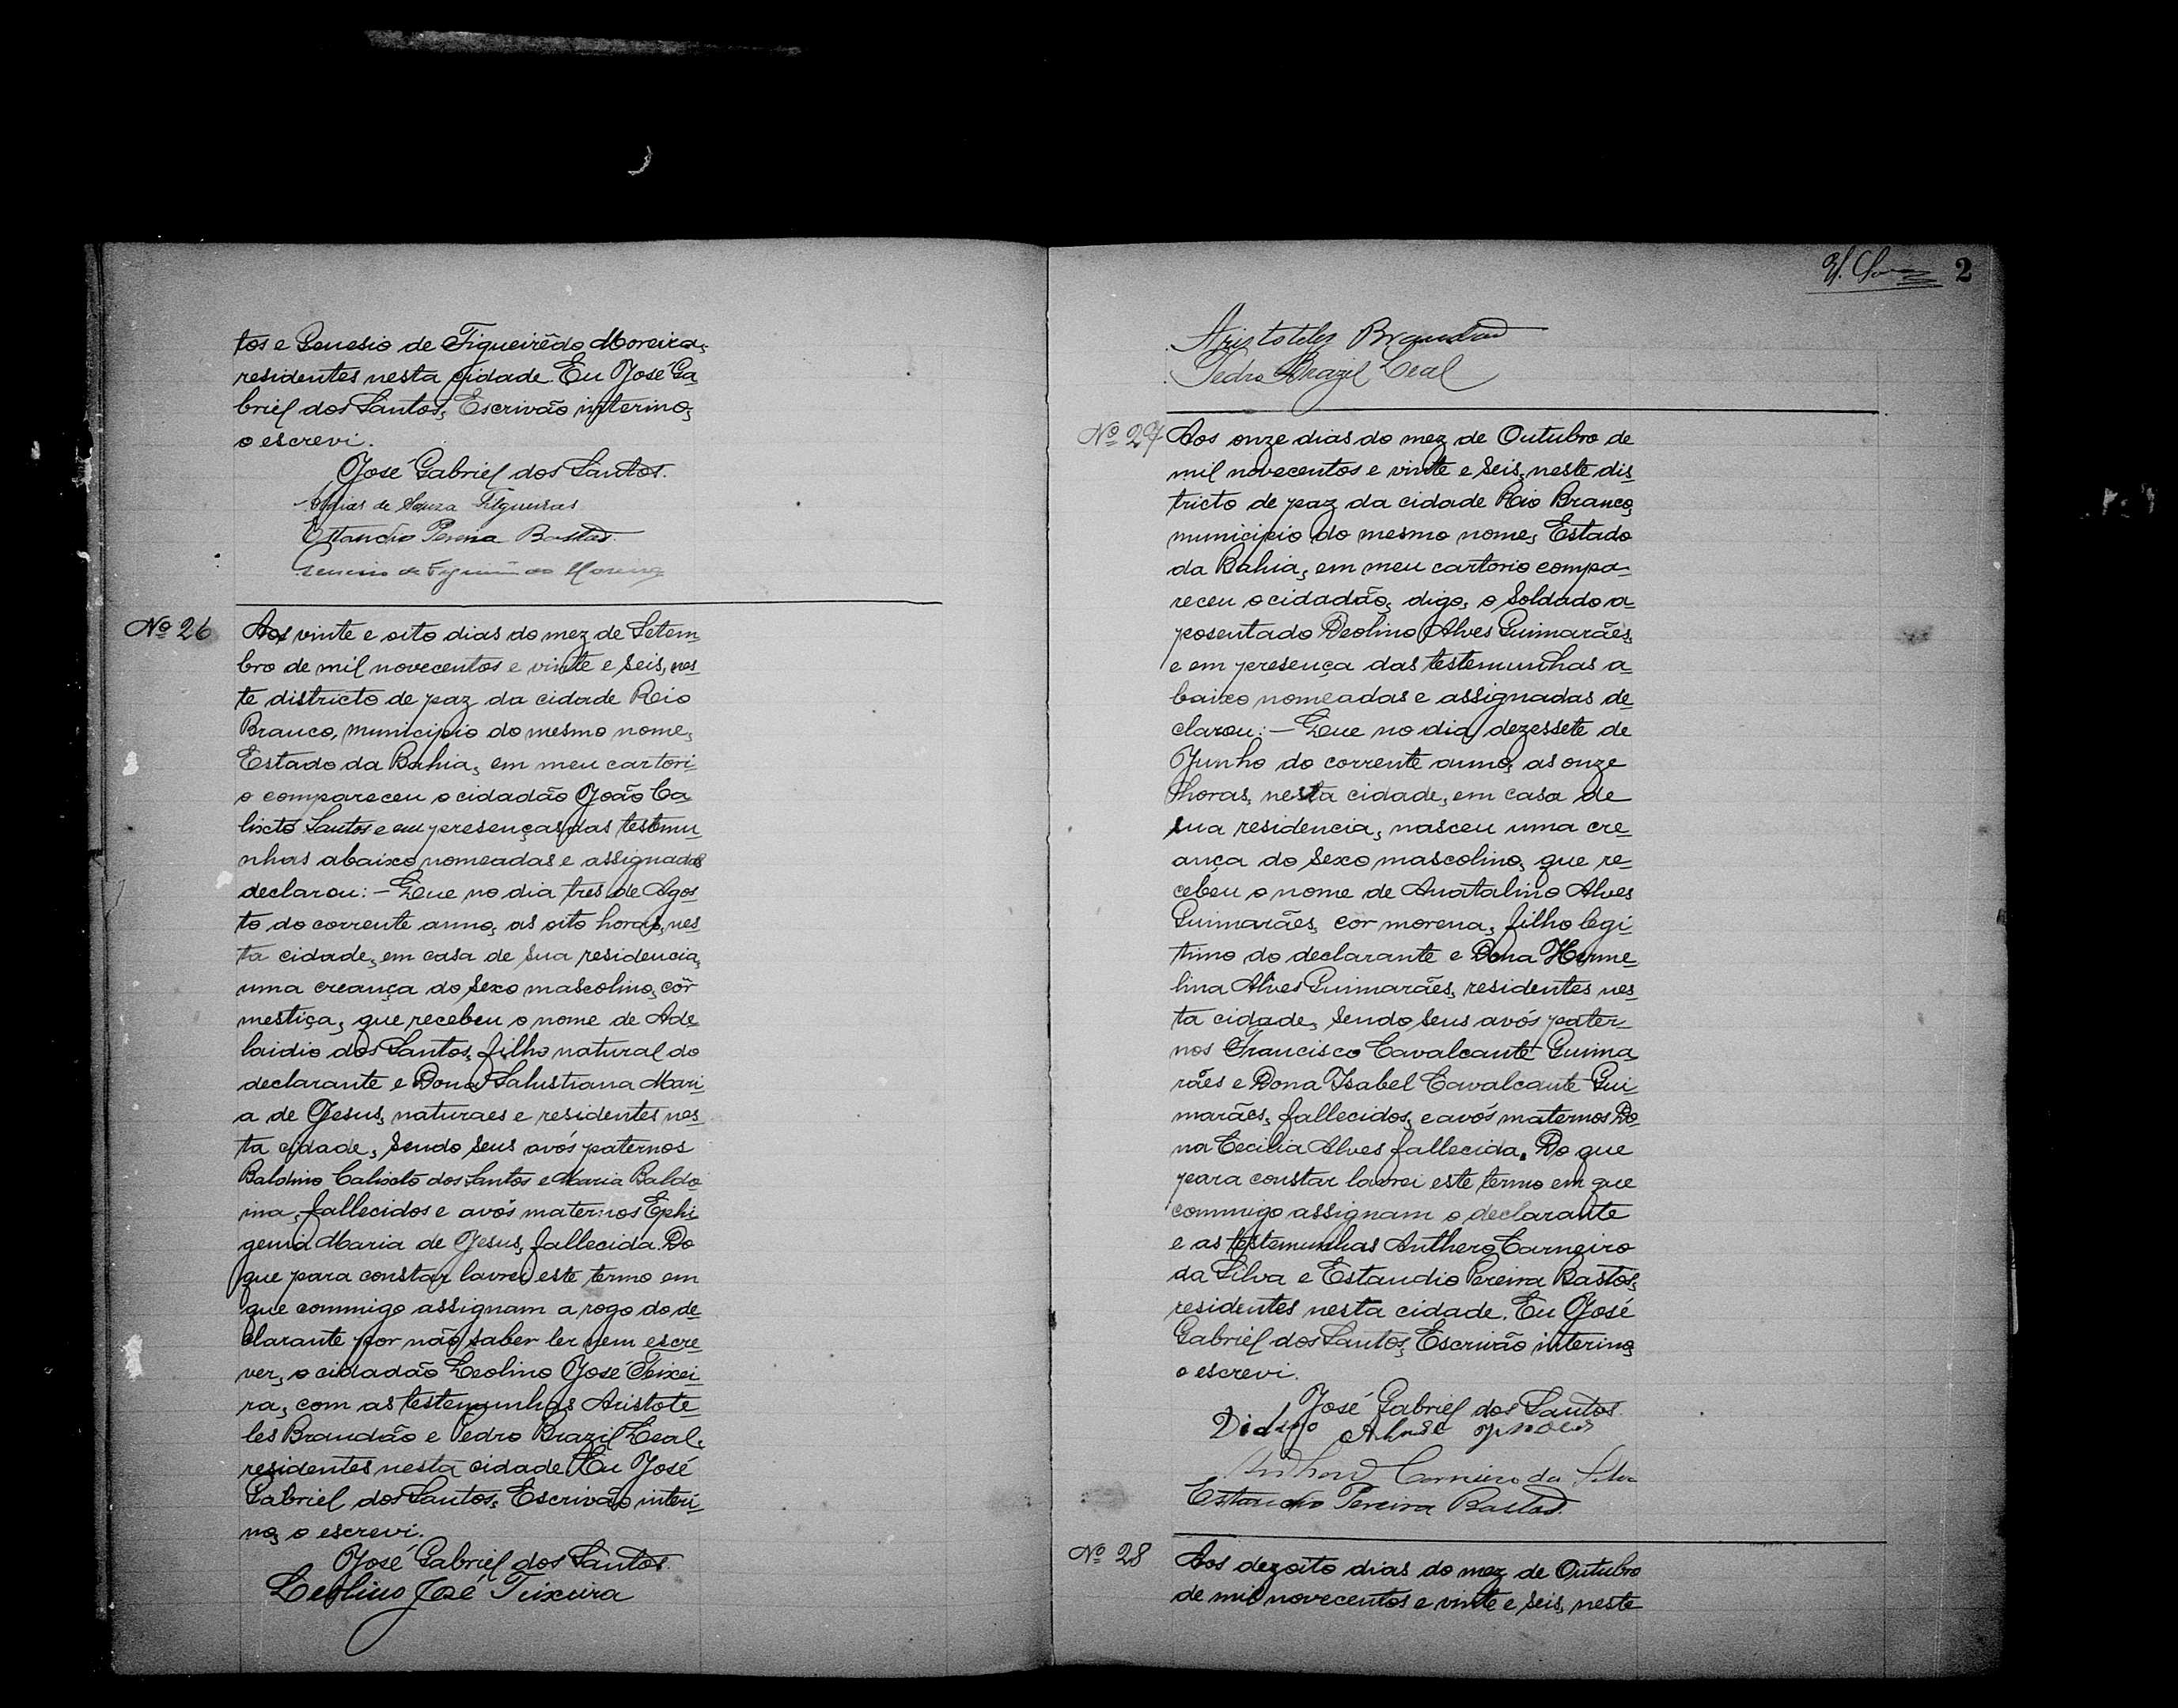 tos e Genesio de Figueirêdo Moreira,
residentes nesta cidade. Eu José Ga
briel dos Santos, Escrivão interino,
o escrevi.
José Gabriel dos Santos.
de Souza Figueiras
Estaudio Pereira Bastos.
Genesio de Figueirêdo Moreira
Nº 26
Aos vinte e oito dias do mez de Setem
bro de mil novecentos e vinte e seis, nes
te districto de paz da cidade Rio
Branco, municipio do mesmo nome,
Estado da Bahia, em meu cartori
o compareceu o cidadão João Ca
lixto Santos e em presenças das testemu
nhas abaixo nomeadas e assignadas
declarou: - Que no dia tres de Agos
to do corrente anno, as oito horas, nes
ta cidade, em casa de sua residencia,
uma creança do sexo mascolino, côr
mestiça, que recebeu o nome de Ade
laidio dos Santos, filho natural do
declarante e Dona Salustiana Mari
a de Jesus, naturaes e residentes nes
ta cidade, sendo seus avós paternos
Baldino Calixto dos Santos e Maria Baldo
ina, fallecidos e avós maternos Ephi
genia Maria de Jesus, fallecida. Do
que para constar lavrei este termo em
que commigo assignam a rogo do de
clarante por não saber ler nem escre
ver, o cidadão Leolino José Teixei
ra, com as testemunhas Aristote
les Brandão e Pedro Brazil Leal,
residentes nesta cidade Eu José
Gabriel dos Santos, Escrivão interi
no, o escrevi.
José Gabriel dos Santos.
Leolino José Teixeira
2
Aristoteles Brandão
Pedro Brazil Leal
Nº 27
Aos onze dias do mez de Outubro de
mil novecentos e vinte e seis, neste dis
tricto de paz da cidade Rio Branco,
municipio do mesmo nome, Estado
da Bahia, em meu cartorio compa
receu o cidadão, digo, o Soldado a
posentado Deolino Alves Guimarães,
e em presença das testemunhas a
baixo nomeadas e assignadas de
clarou: - Que no dia dezessete de
Junho do corrente anno, as onze
horas, nesta cidade, em casa de
sua residencia, nasceu uma cre
ança do sexo mascolino, que re
cebeu o nome de Anatalino Alves
Guimarães, côr morena, filho legi
timo do declarante e Dona Herme
lina Alves Guimarães, residentes nes
ta cidade, sendo seus avós pater
nos Francisco Cavalcante Guima
rães e Dona Isabel Cavalcante Gui
marães, fallecidos, e avós maternos Do
na Cecilia Alves fallecida. Do que
para constar lavrei este termo em que
commigo assignam o declarante
e as testemunhas Anthero Carneiro
da Silva e Estaudio Pereira Bastos,
residentes nesta cidade. Eu José
Gabriel dos Santos, Escrivão interino,
o escrevi.
José Gabriel dos Santos.
Carneiro da Silva
Estaudio Pereira Bastos.
Nº 28
Aos dezoito dias do mez de Outubro
de mil novecentos e vinte e seis, neste